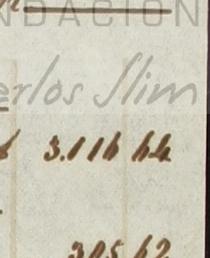 NDACIÓN
erlos Slim
3.116 64
305 62